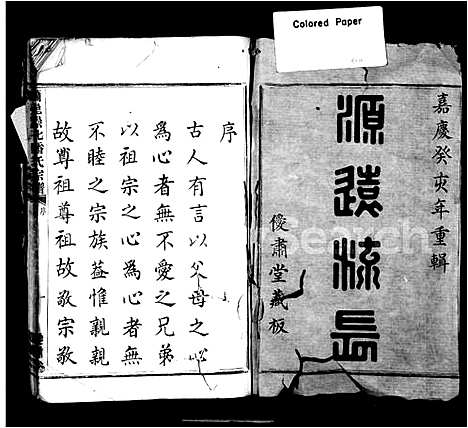 Colored Paper
嘉慶癸亥年重輯
源遠流長
優肅堂藏板
序
古人有言以父母之心
為心者無不愛之兄弟
以祖宗之心為心者無
不睦之宗族蓋惟親親
故尊祖尊祖故敬宗敬
氏宗譜
序
Search